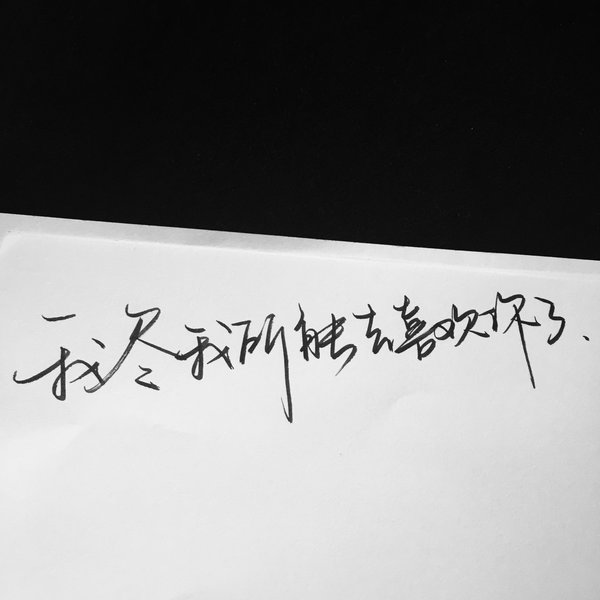 我尽我所能去喜欢你了、